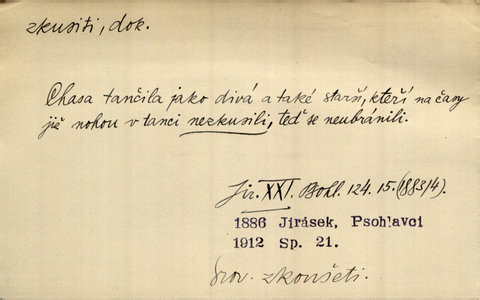 zkusiti, dok.
Chasa tančila jako divá a také starší, kteří na časy
již nohou v tanci nezkusili, teď se neubránili.
Jir. XXI. Bohl. 124. 15. (1883/4).
1886 Jirásek, Psohlavci
1912 Sp. 21.
srov. zkoušeti.